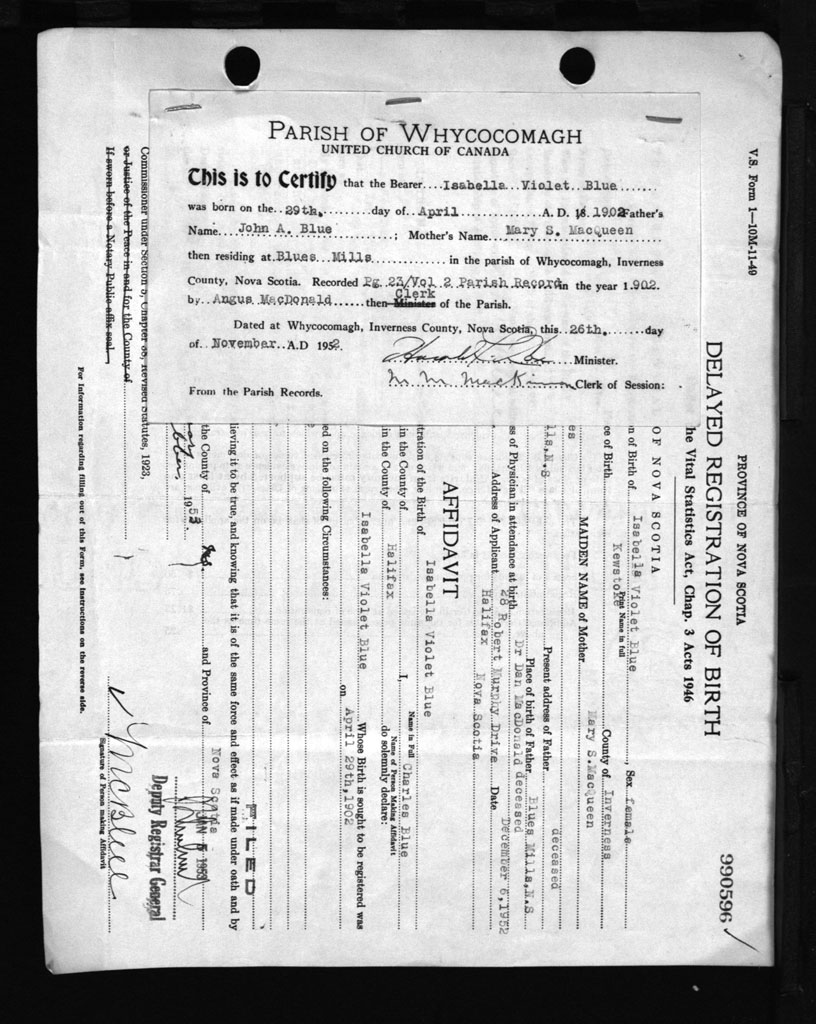 PARISH OF WHYCOCOMAGH
UNITED CHURCH OF CANADA
This is to Certify that the Bearer....Isabella Violet Blue......
was born on the 29th..........day of...April..........A. D. 18. 1902 Father's
Name...John A. Blue..........; Mother's Name...Mary S. MacQueen
then residing at.Blues Mills..........in the parish of Whycocomagh, Inverness
County, Nova Scotia. Recorded Pg 23/Vol 2 Parish Record in the year 1.902.
Clerk
by..Angus MacDonald......then Minister of the Parish.
Dated at Whycocomagh, Inverness County, Nova Scotia, this..26th........day
of..November..A.D 1952.
Minister.
M. M. MacKinnon Clerk of Session:
From the Parish Records.
V.S. Form 1—10M-11-49
990596
PROVINCE OF NOVA SCOTIA
DELAYED REGISTRATION OF BIRTH
he Vital Statistics Act, Chap. 3 Acts 1946
OF NOVA SCOTIA
n of Birth of Isabella Violet Blue, Sex female
Print Name in full
ce of Birth Kewstoke County of Inverness
es MAIDEN NAME of Mother Mary S.MacQueen
Present address of Father deceased
lls,N.S Place of birth of Father Blues Mills,N.S
ss of Physician in attendance at birth Dr Dan MacDonald deceased
Address of Applicant 28 Robert Murphy Drive Date December 6,1952
Halifax Nova Scotia
AFFIDAVIT
tration of the Birth of Isabella Violet Blue
Name in Full
in the County of I, Charles Blue
Name of Person Making Affidavit
in the County of Halifax do solemnly declare:
Isabella Violet Blue Whose Birth is sought to be registered was
on April 29th,1902
ed on the following Circumstances:
lieving it to be true, and knowing that it is of the same force and effect as if made under oath and by
FILED
the County of and Province of Nova Scotia
JAN 5 1953
1953
Deputy Registrar General
McBlue
Signature of Person making Affidavit
Commissioner under Section 5, Chapter 38, Revised Statutes, 1923,
or Justice of the Peace in and for the County of
If sworn before a Notary Public affix seal
For Information regarding filling out of this Form, see Instructions on the reverse side.